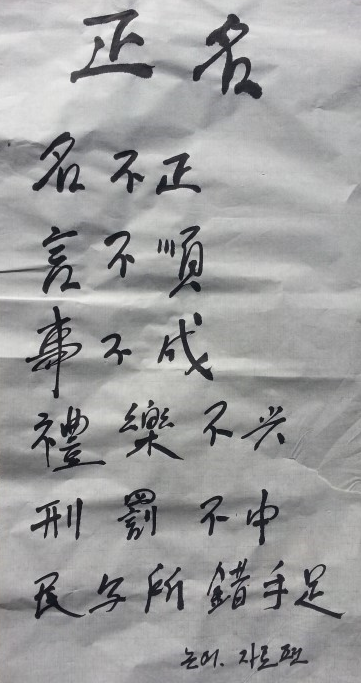 正名
名不正
言不順
事不成
禮樂不兴
刑罰不中
民子所錯手足
논어. 자로편